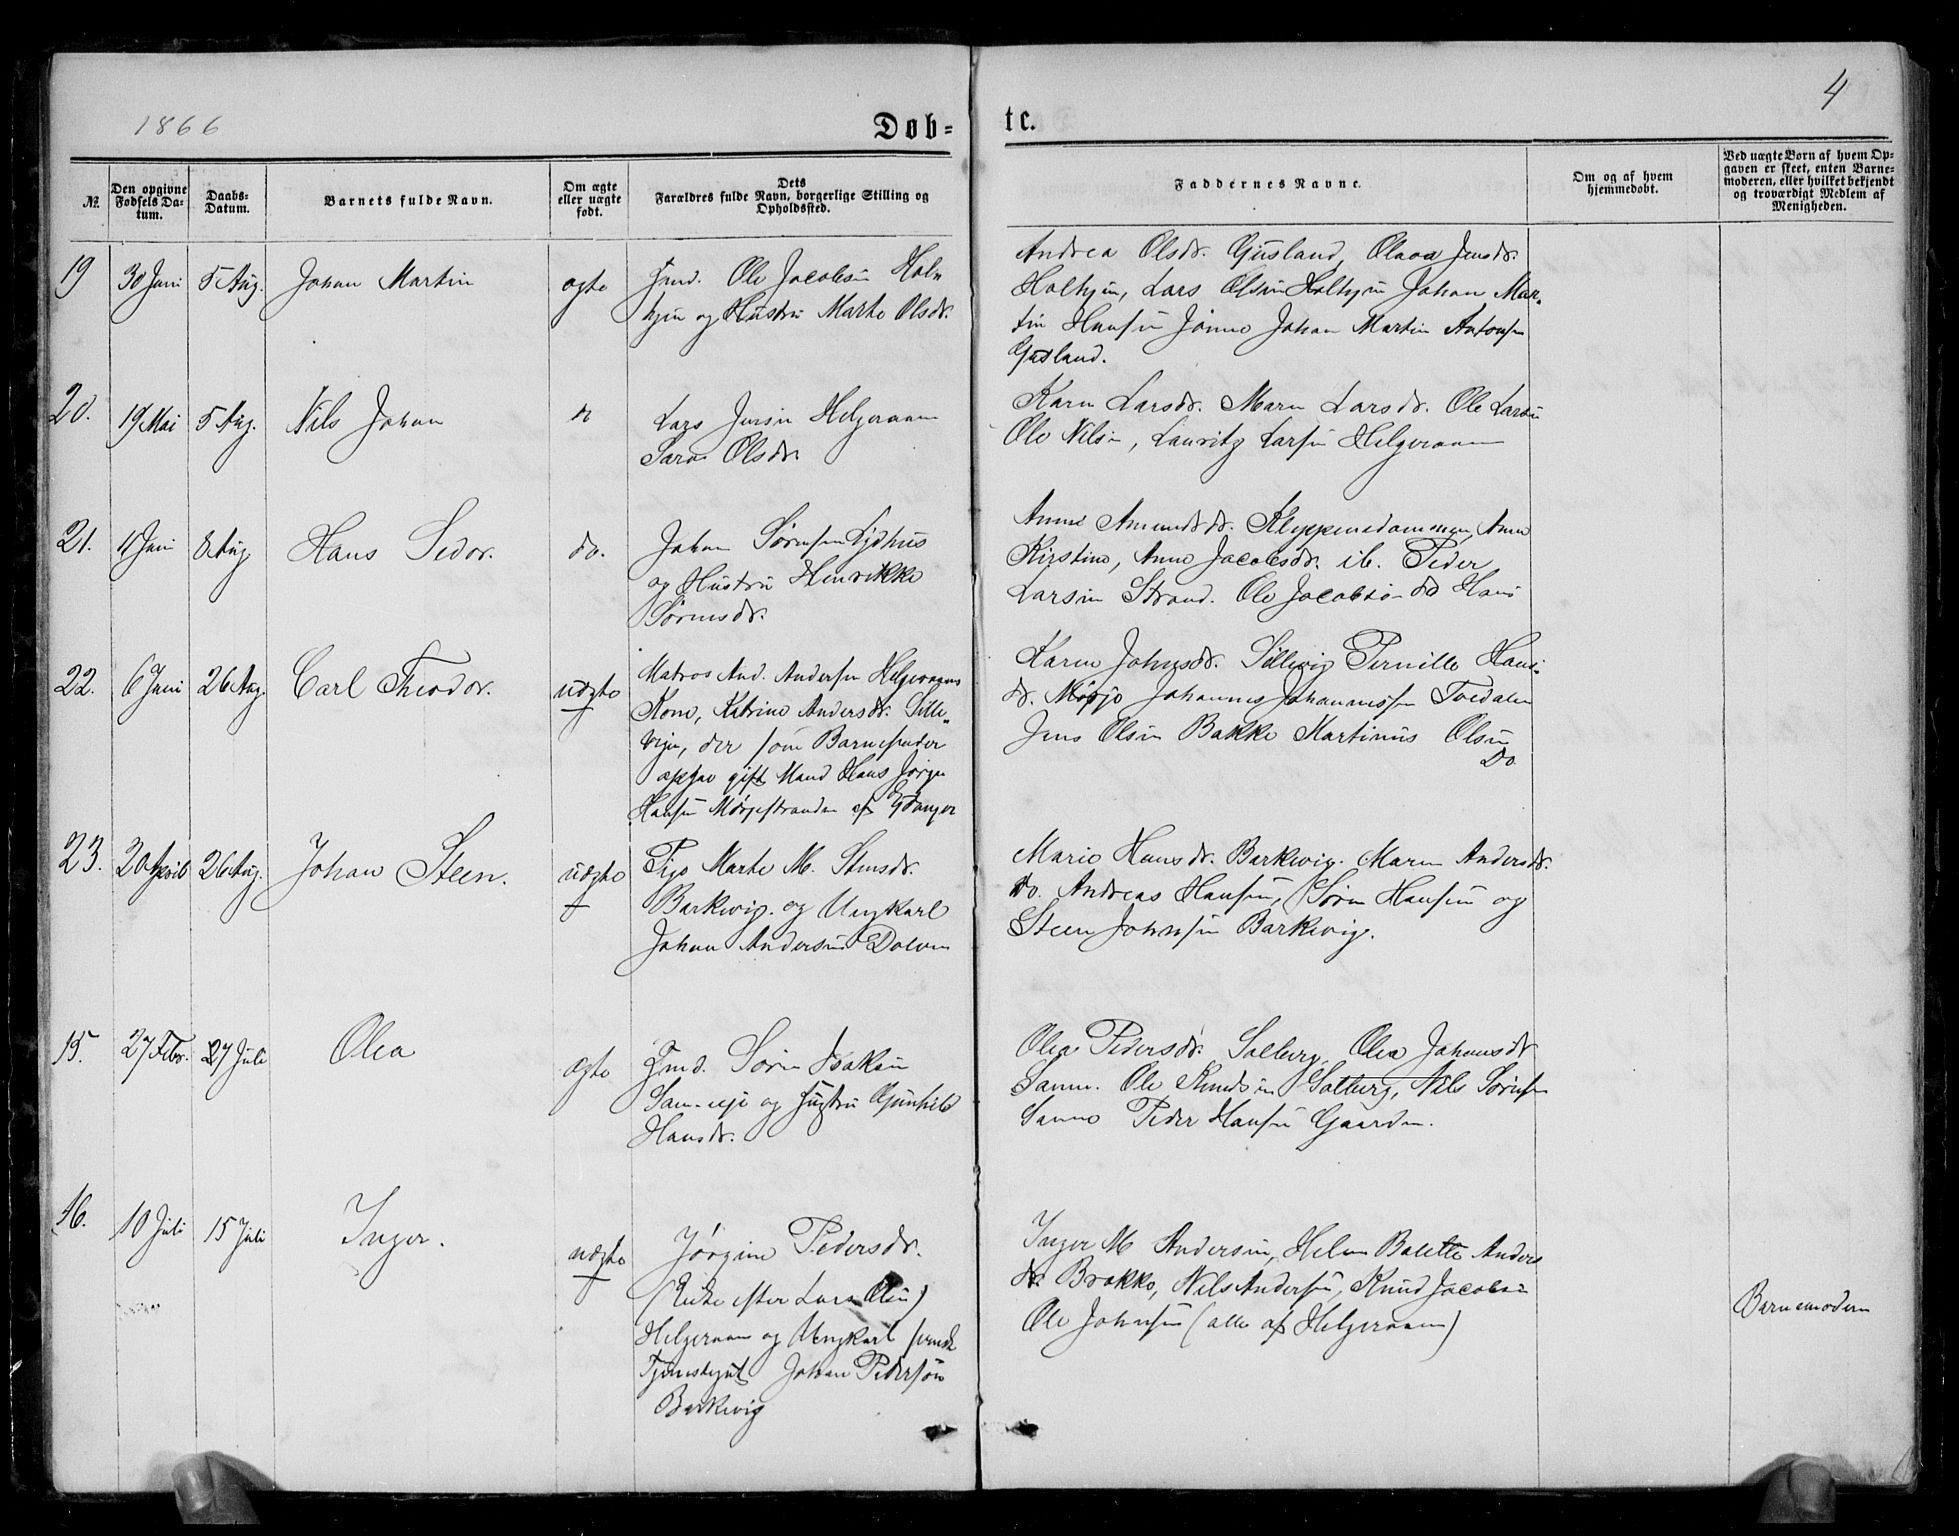 1866
Døb-
te.
4
№.
Den opgivne
Fødsels Da-
tum.
Daabs-
Datum.
Barnets fulde Navn.
Om ægte
eller uægte
født.
Dets
Forældres fulde Navn, borgerlige Stilling og
Opholdssted.
Faddernes Navne.
Om og af hvem
hjemmedøbt.
Ved uægte Børn af hvem Op-
gaven er skeet, enten Barne-
moderen, eller hvilket bekjendt
og troværdigt Medlem af
Menigheden.
19
30 Juni
5 Aug.
Johan Martin
ægte
Ole Jacobsen
og Hustru Marte Olsdr.
Andrea Olsdr. Gusland, Jensdr.
Lars Olsen Johan Mar-
tin Hansen Johan Martin Antonsen
Gusland.
20.
19 Mai
5 Aug.
Nils Johan
Lars Jensen Helgeraaen
Sara Olsdr.
Karn Larsdr. Maren Larsdr. Ole Larsen
Ole Nilsen, Lauritz Larsen Helgeraaen
21.
Juni
8 Aug.
Hans Sedor.
do.
Johan Sørensen
og Hustru Henrikke
Sørensdr.
Anne Amundsdr. Anne
Kirstine, Anne Jacobsdr. ib. Peder
Larsen Strand. Ole Jacobsen do Hans
22.
6 Juni
26 Aug.
Carl Theodor.
uægte
Matros And. Andersen Helgeraaens
Kone, Katrine Andersdr. Sille-
vigen, der som Barnefader
opgav gift Mand Hans Jørgen
Hansen Mørjestranden af Eidanger
Karen Johnsdr. Sillevig Pernille Hans-
dr. Mørjo Johannes Johannessen Tvedalen
Jens Olsen Bakke Martinus Olsen
Do
23.
20 April
26 Aug.
Johan Steen.
uægte
Pige Marte M. Stensdr.
Barkevig. og Ungkarl
Johan Andersen Dolven
Marie Hansdr. Barkevig. Maren Andersdr.
do. Andreas Hansen, Søren Hansen og
Steen Johnsen Barkevig.
15.
27 Febr.
27 Juli
Olea
Ægte
Søren Isaksen
og Hustru Gunhild
Hansdr.
Olea Pedersdr. Solberg, Olea Johansdr.
Sanne. Ole Knudsen Solberg, Nils Sørensen
Sanne Peder Hansen Gaarden.
16.
10 Juli
15 Juli
Inger.
uægte
Jørgine Pedersdr.
(Enke efter Lars Olsen)
Helgeraaen og Ungkarl
Tjenestegut Johan Pedersen
Barkevig
Inger M Andersen, Helene Bolette Anders
dr. Brokke, Nils Andersen, Knud Jacobsen
Ole Johnsen (alle af Helgeraaen)
Barnemoderen